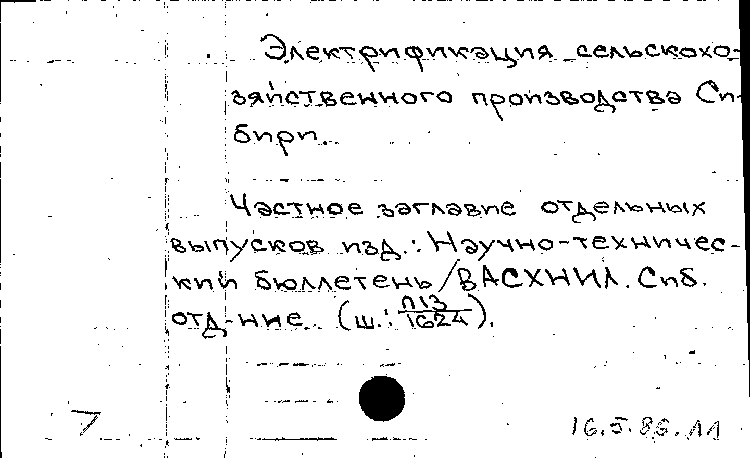 Электрификация сельскохо-
зяйственного производства Си-
бири.
Частное заглавие отдельных
выпусков изд.: Научно-техничес-
кий бюллетень/ВАСХНИЛ. Сиб.
отд-ние. (ш.: П13/1624).
16.5.86.11